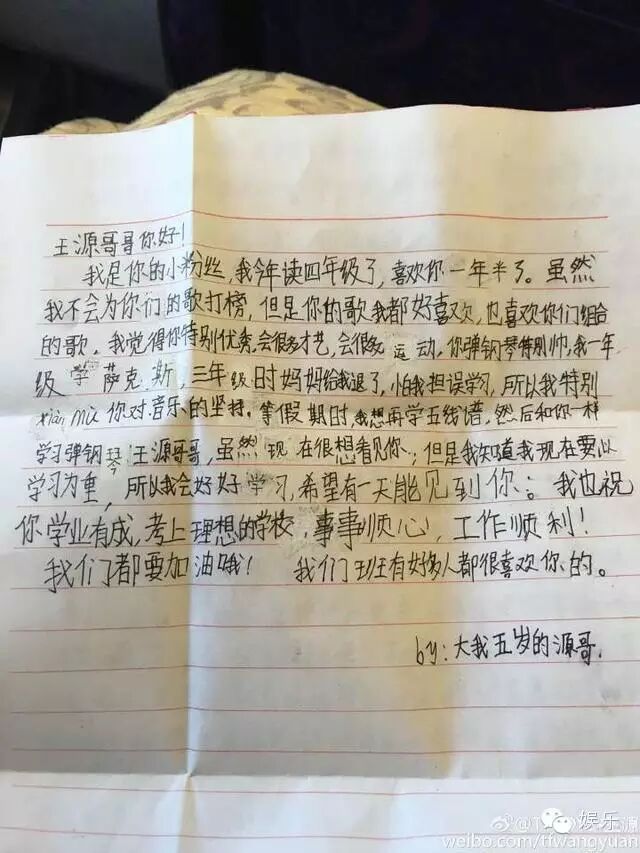 王源哥哥你好！
我是你的小粉丝，我今年读四年级了，喜欢你一年半了。虽然
我不会为你们的歌打榜，但是你的歌我都好喜欢，也喜欢你们组合
的歌。我觉得你特别优秀，会很多才艺，会很多运动，你弹钢琴特别帅，我一年
级学萨克斯，三年级时妈妈给我退了，怕我担误学习，所以我特别
xiàn mù 你对音乐的坚持。等假期时，我想再学五线谱，然后和你一样
学习弹钢琴 王源哥哥，虽然现在很想看见你，但是我知道我现在要以
学习为重，所以我会好好学习，希望有一天能见到你。我也祝
你学业有成，考上理想的学校，事事顺心，工作顺利！
我们都要加油哦！ 我们班有好多人都很喜欢你的。
by：大我五岁的源哥.
娱乐
weibo.com/tfwangyuan